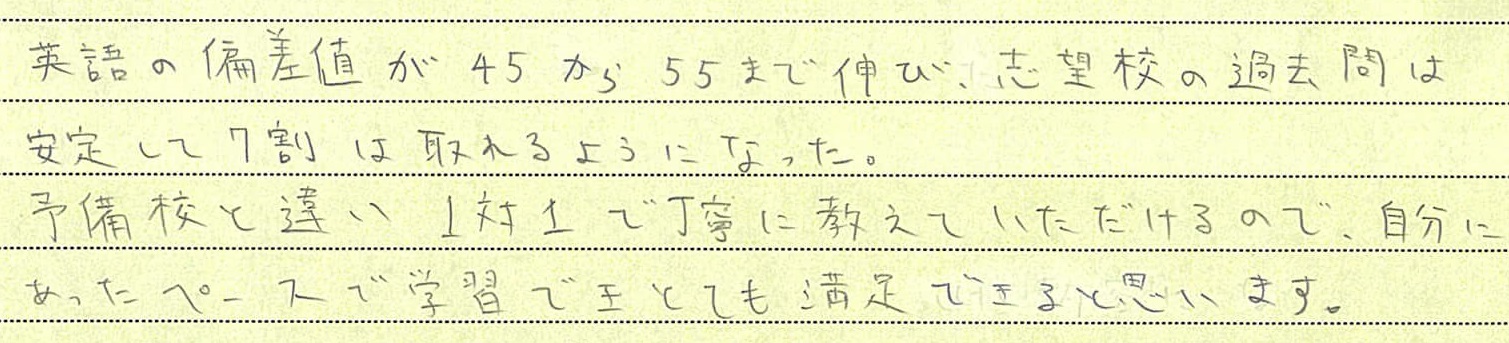 英語の偏差値が45から55まで伸び、志望校の過去問は
安定して7割は取れるようになった。
予備校と違い1対1で丁寧に教えていただけるので、自分に
あったペースで学習できとても満足できると思います。